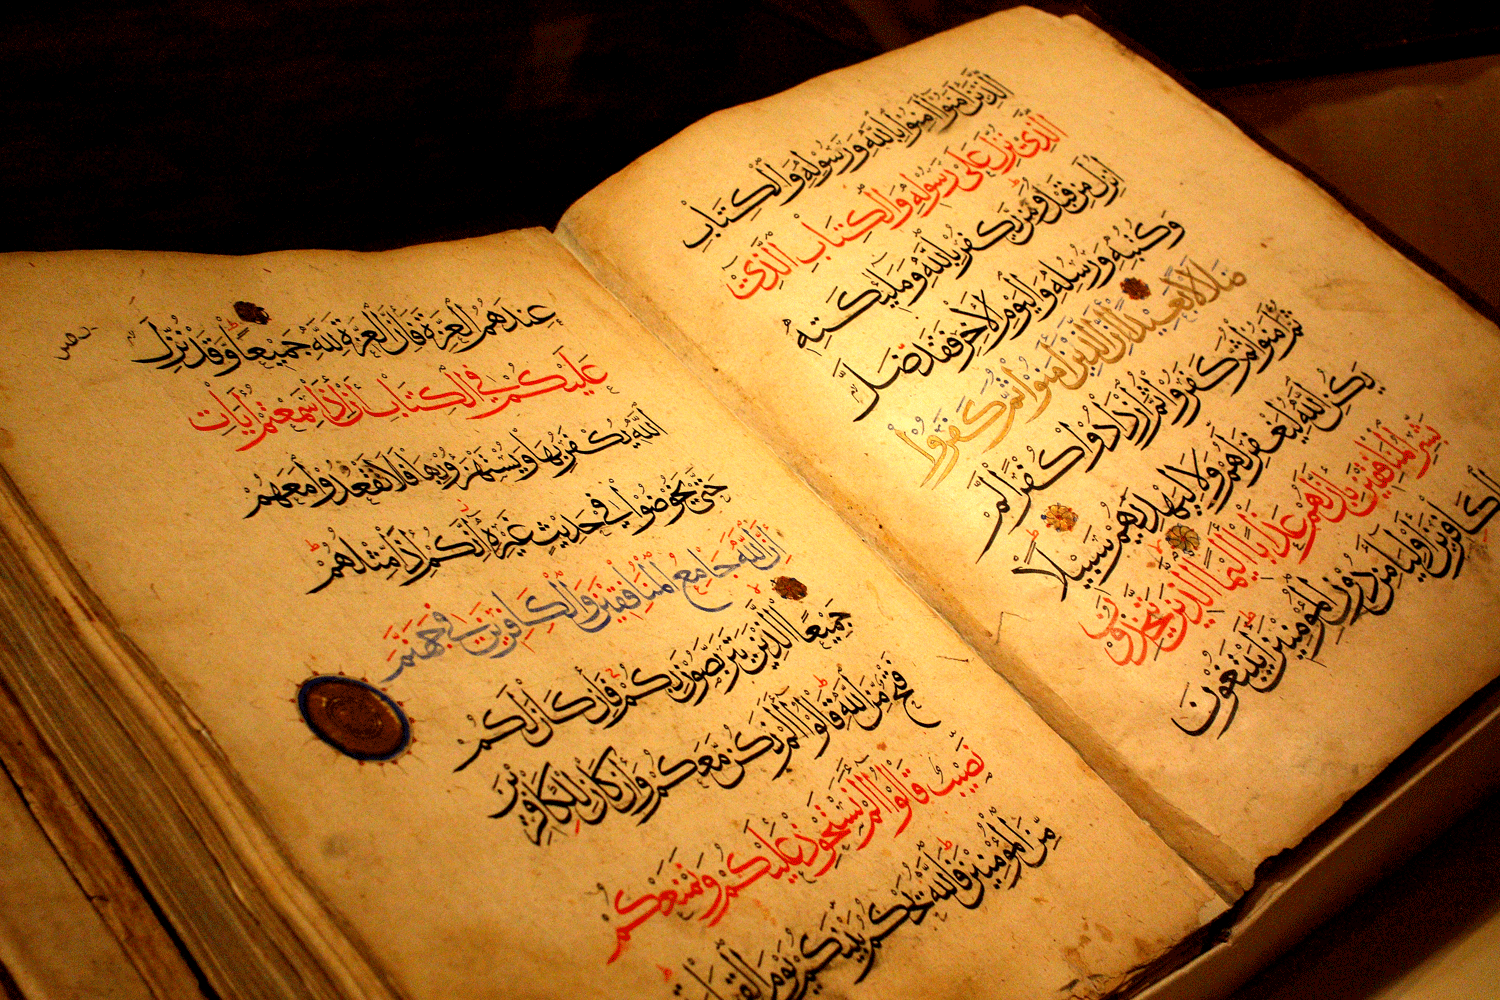 الَّذِينَ آمَنُوا آمِنُوا بِاللَّهِ وَرَسُولِهِ وَالْكِتَابِ
الَّذِي نَزَّلَ عَلَى رَسُولِهِ وَالْكِتَابِ الَّذِي
أَنْزَلَ مِنْ قَبْلُ وَمَنْ يَكْفُرْ بِاللَّهِ وَمَلَئِكَتِهِ
وَكُتُبِهِ وَرُسُلِهِ وَالْيَوْمِ الْآخِرِ فَقَدْ ضَلَّ
ضَلَالًا بَعِيدًا إِنَّ الَّذِينَ آمَنُوا ثُمَّ كَفَرُوا
ثُمَّ آمَنُوا ثُمَّ كَفَرُوا ثُمَّ ازْدَادُوا كُفْرًا لَمْ
يَكُنِ اللَّهُ لِيَغْفِرَ لَهُمْ وَلَا لِيَهْدِيَهُمْ سَبِيلًا
بَشِّرِ الْمُنَافِقِينَ بِأَنَّ لَهُمْ عَذَابًا أَلِيمًا الَّذِينَ يَتَّخِذُونَ
الْكَافِرِينَ أَوْلِيَاءَ مِنْ دُونِ الْمُؤْمِنِينَ أَيَبْتَغُونَ
عِنْدَهُمُ الْعِزَّةَ فَإِنَّ الْعِزَّةَ لِلَّهِ جَمِيعًا وَقَدْ نُزِّلَ
عَلَيْكُمْ فِي الْكِتَابِ أَنْ إِذَا سَمِعْتُمْ آيَاتِ
اللَّهِ يُكْفَرُ بِهَا وَيُسْتَهْزَؤُ بِهَا فَلَا تَقْعُدُوا مَعَهُمْ
حَتَّى يَخُوضُوا فِي حَدِيثٍ غَيْرِهِ إِنَّكُمْ إِذًا مِثْلُهُمْ
إِنَّ اللَّهَ جَامِعُ الْمُنَافِقِينَ وَالْكَافِرِينَ فِي جَهَنَّمَ
جَمِيعًا الَّذِينَ يَتَرَبَّصُونَ بِكُمْ فَإِنْ كَانَ لَكُمْ
فَتْحٌ مِنَ اللَّهِ قَالُوا أَلَمْ نَكُنْ مَعَكُمْ وَإِنْ كَانَ لِلْكَافِرِينَ
نَصِيبٌ قَالُوا أَلَمْ نَسْتَحْوِذْ عَلَيْكُمْ وَنَمْنَعْكُمْ
مِنَ الْمُؤْمِنِينَ فَاللَّهُ يَحْكُمُ بَيْنَكُمْ يَوْمَ